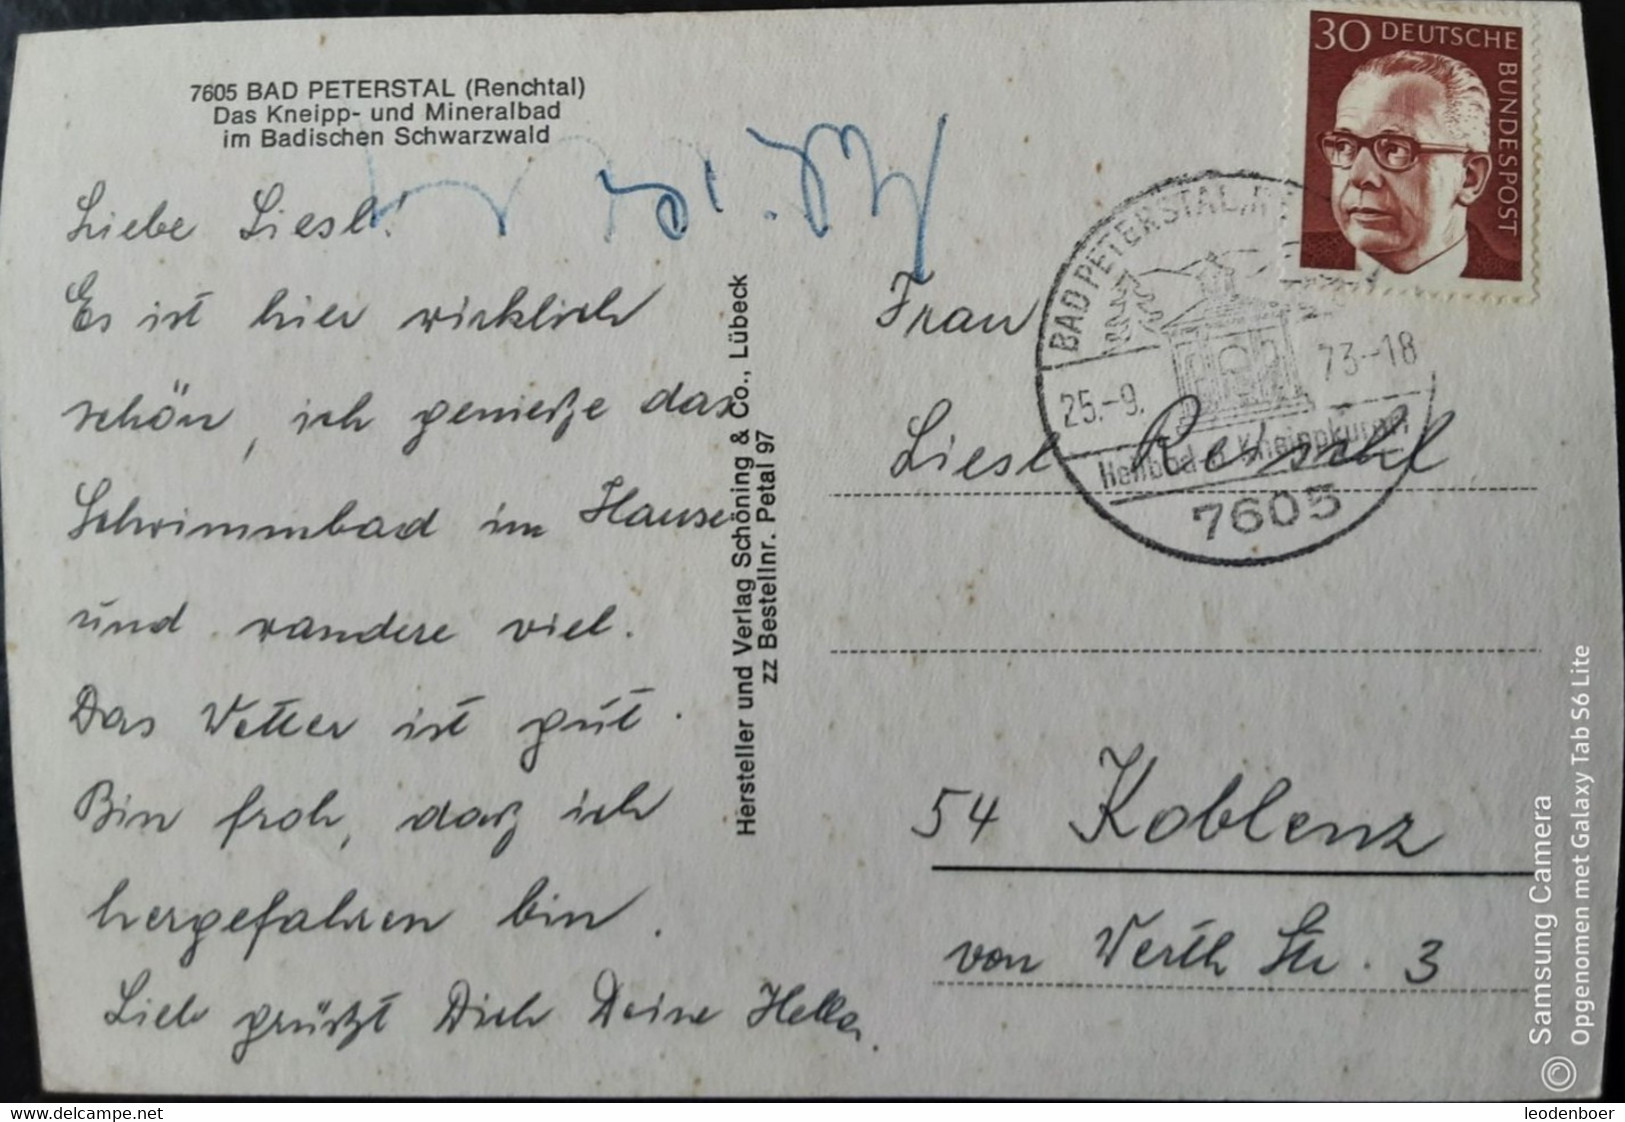 7605 BAD PETERSTAL (Renchtal)
Das Kneipp- und Mineralbad
im Badischen Schwarzwald
Liebe Liesl!
Es ist hier wirklich
schön, ich genieße das
Schwimmbad im Hause
und wandere viel.
Das Wetter ist gut.
Bin froh, daß ich
hergefahren bin.
Lieb grüßt Dich Deine Hella.
Hersteller und Verlag Schöning & Co., Lübeck
zz Bestellnr. Petal 97
30 DEUTSCHE
BUNDESPOST
BAD PETERSTAL
25.-9. 73.-18
Heilbad u Kneippkurort
7605
Frau
Liesl
54 Koblenz
von Werth Str. 3
Samsung Camera
Opgenomen met Galaxy Tab S6 Lite
www.delcampe.net
leodenboer